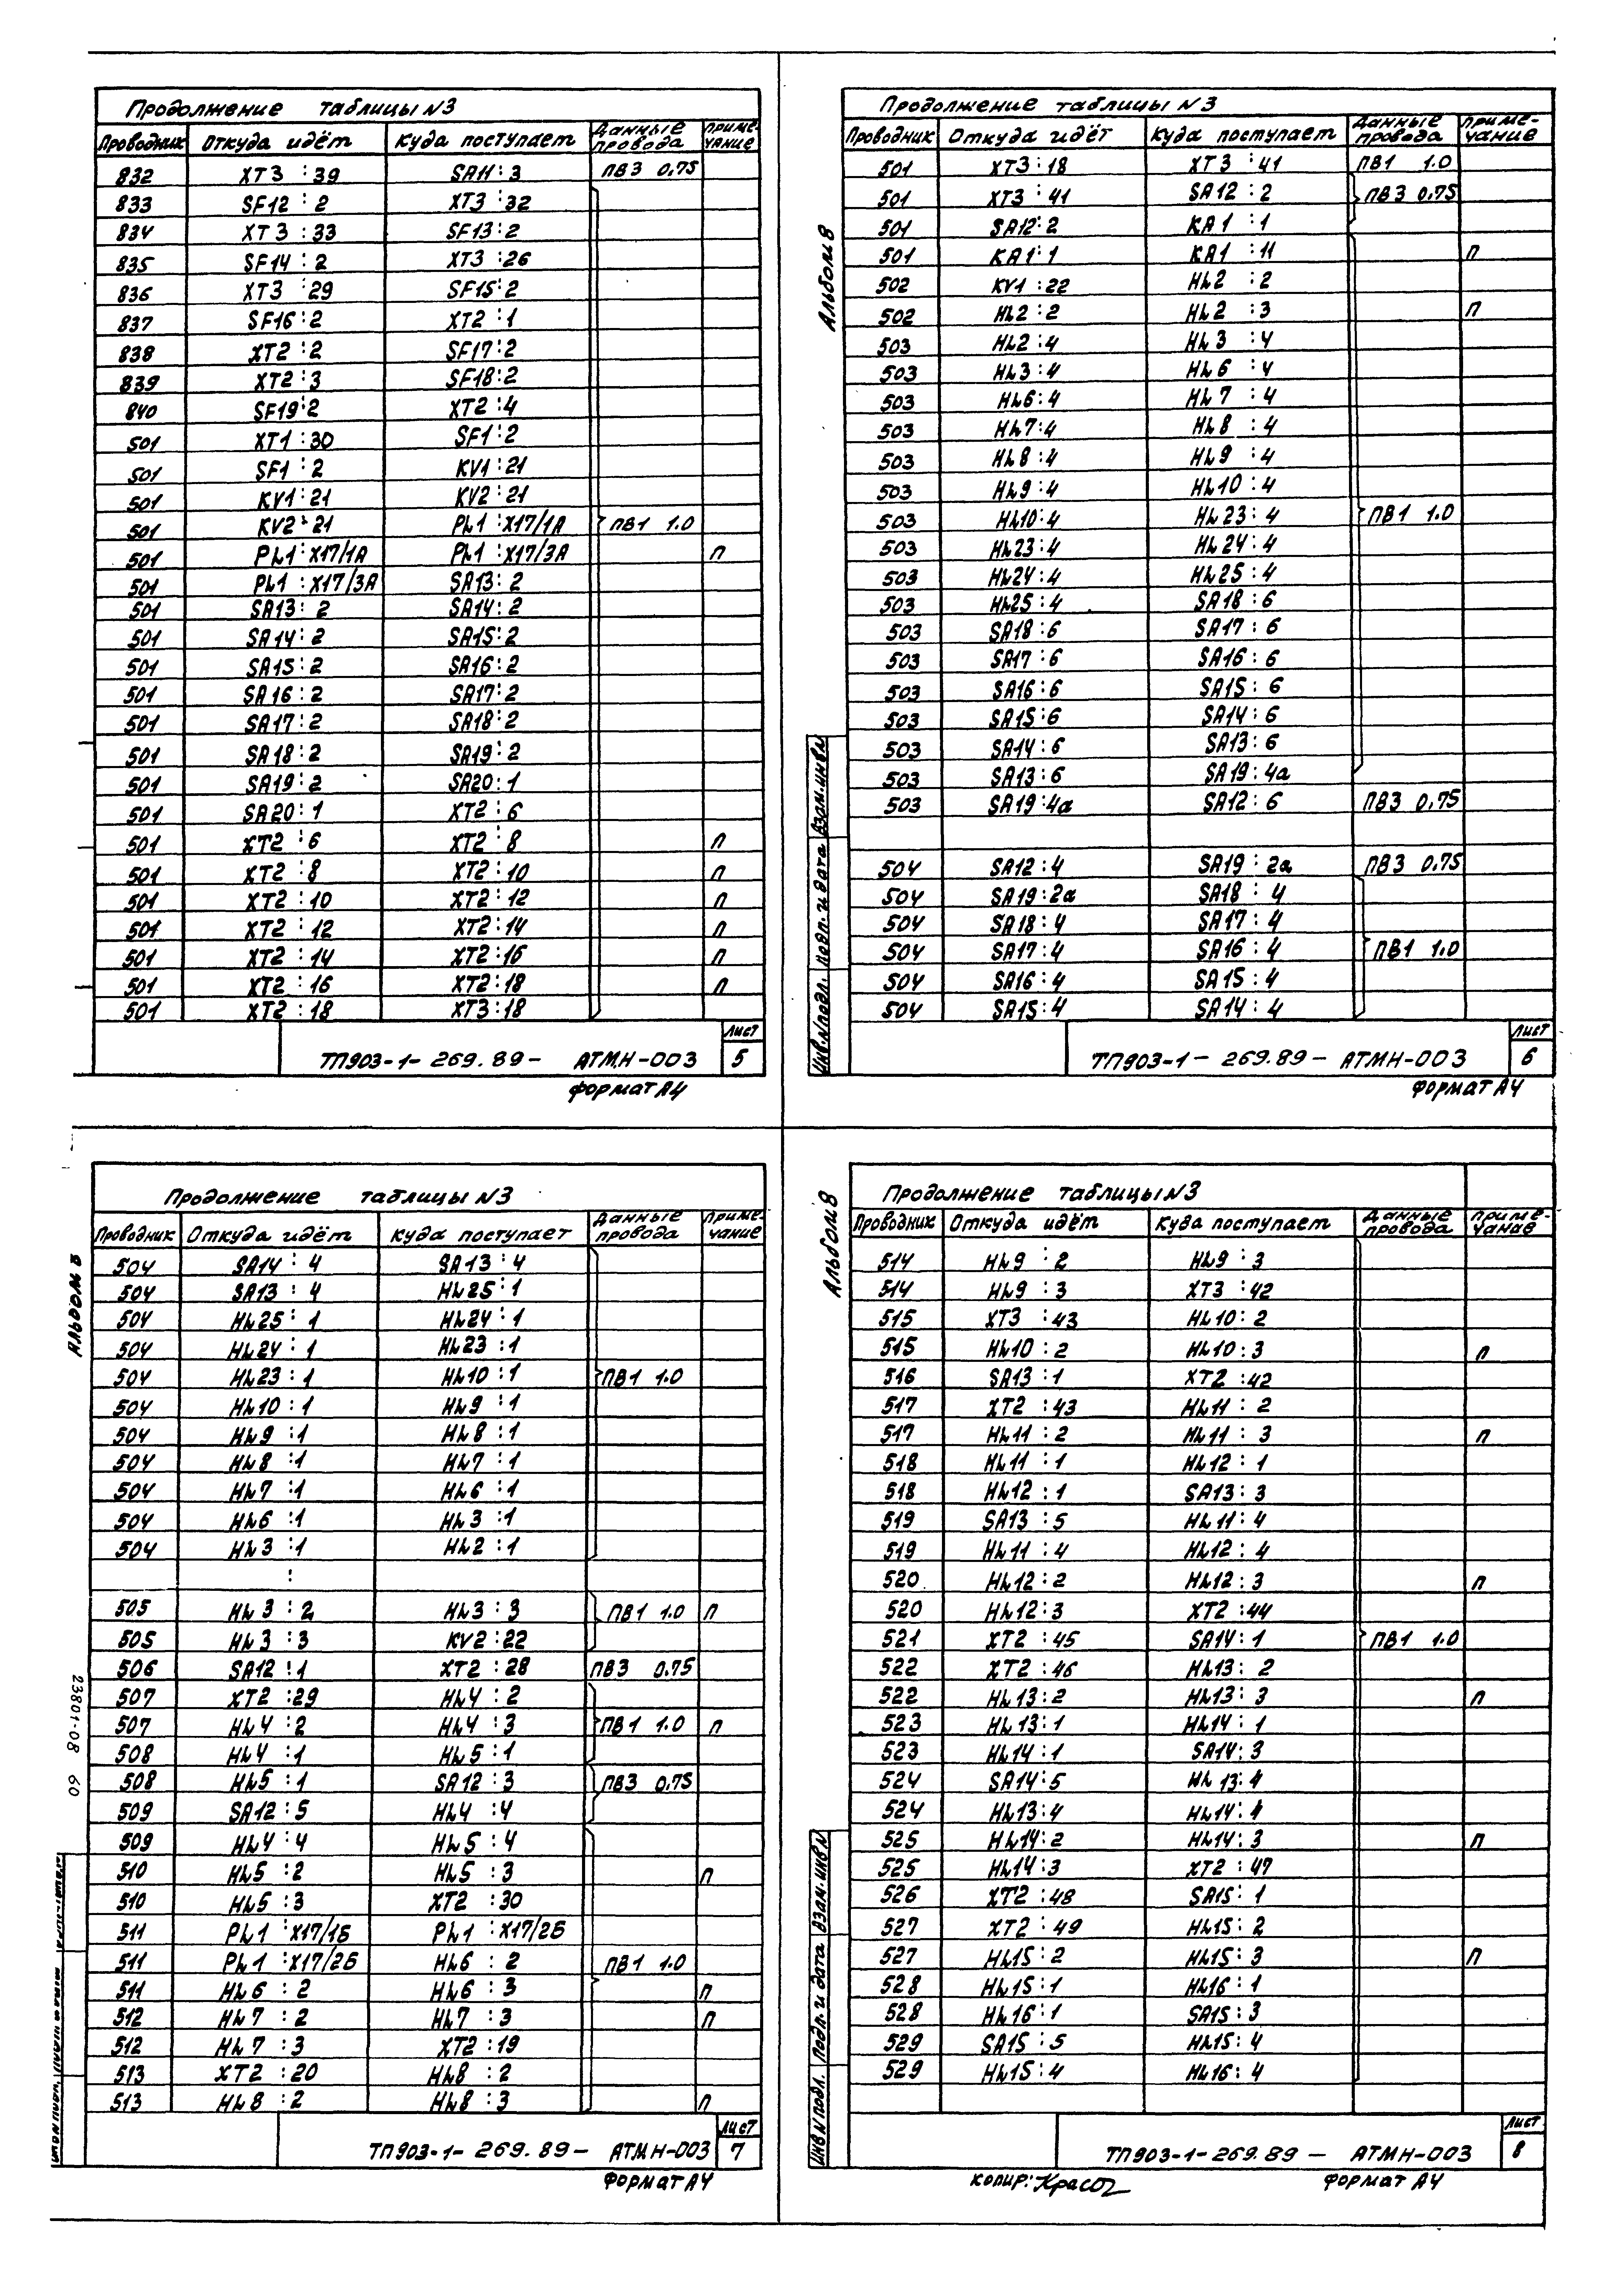 Продолжение таблицы N3
Проводник Откуда идёт Куда поступает Данные провода Примечание
832 XT3 :39 SA11:3 ПВ3 0,75
833 SF12 :2 XT3 :32
834 XT3 :33 SF13:2
835 SF14 :2 XT3 :26
836 XT3 :29 SF15:2
837 SF16:2 XT2 :1
838 XT2 :2 SF17:2
839 XT2 :3 SF18:2
840 SF19:2 XT2 :4
501 XT1 :30 SF1 :2
501 SF1 :2 KV1 :21
501 KV1 :21 KV2 :21
501 KV2 :21 PL1 :X17/1A ПВ1 1.0
501 PL1 :X17/1A PL1 :X17/3A п
501 PL1 :X17/3A SA13:2
501 SA13:2 SA14:2
501 SA14:2 SA15:2
501 SA15:2 SA16:2
501 SA16:2 SA17:2
501 SA17:2 SA18:2
501 SA18:2 SA19:2
501 SA19:2 SA20:1
501 SA20:1 XT2 :6
501 XT2 :6 XT2 :8 п
501 XT2 :8 XT2 :10 п
501 XT2 :10 XT2 :12 п
501 XT2 :12 XT2 :14 п
501 XT2 :14 XT2 :16 п
501 XT2 :16 XT2 :18 п
501 XT2 :18 XT3 :18
ТП903-1-269.89- АТМН-003 Лист 5
Формат А4
Альбом 8
Продолжение таблицы N3
Проводник Откуда идёт Куда поступает Данные провода Примечание
501 XT3 :18 XT3 :41 ПВ1 1.0
501 XT3 :41 SA12 :2 ПВ3 0,75
501 SA12:2 KA1 :1
501 KA1 :1 KA1 :11 п
502 KV1 :22 HL2 :2
502 HL2 :2 HL2 :3 п
503 HL2 :4 HL3 :4
503 HL3 :4 HL6 :4
503 HL6 :4 HL7 :4
503 HL7 :4 HL8 :4
503 HL8 :4 HL9 :4
503 HL9 :4 HL10 :4
503 HL10:4 HL23 :4 ПВ1 1.0
503 HL23:4 HL24 :4
503 HL24:4 HL25 :4
503 HL25:4 SA18 :6
503 SA18:6 SA17 :6
503 SA17 :6 SA16 :6
503 SA16:6 SA15 :6
503 SA15:6 SA14 :6
503 SA14:6 SA13 :6
503 SA13:6 SA19:4а
503 SA19:4а SA12:6 ПВ3 0,75
504 SA12:4 SA19 :2а ПВ3 0,75
504 SA19:2а SA18 :4
504 SA18:4 SA17 :4
504 SA17:4 SA16 :4 ПВ1 1.0
504 SA16:4 SA15 :4
504 SA15:4 SA14 :4
Инв.N подл. Подп. и дата Взам.инв.N
ТП903-1-269.89-АТМН-003 Лист 6
Формат А4
Альбом 8
Продолжение таблицы N3
Проводник Откуда идёт Куда поступает Данные провода Примечание
504 SA14 :4 SA13 :4
504 SA13 :4 HL25 :1
504 HL25 :1 HL24 :1
504 HL24 :1 HL23 :1
504 HL23 :1 HL10 :1 ПВ1 1.0
504 HL10 :1 HL9 :1
504 HL9 :1 HL8 :1
504 HL8 :1 HL7 :1
504 HL7 :1 HL6 :1
504 HL6 :1 HL3 :1
504 HL3 :1 HL2 :1
:
505 HL3 :2 HL3 :3 ПВ1 1.0 п
505 HL3 :3 KV2 :22
506 SA12 :1 XT2 :28 ПВ3 0.75
507 XT2 :29 HL4 :2
507 HL4 :2 HL4 :3 ПВ1 1.0 п
508 HL4 :1 HL5 :1
508 HL5 :1 SA12 :3 ПВ3 0,75
509 SA12 :5 HL4 :4
509 HL4 :4 HL5 :4
510 HL5 :2 HL5 :3 п
510 HL5 :3 XT2 :30
511 PL1 :X17/1Б PL1 :X17/2Б
511 PL1 :X17/2Б HL6 :2 ПВ1 1.0
511 HL6 :2 HL6 :3 п
512 HL7 :2 HL7 :3 п
512 HL7 :3 XT2 :19
513 XT2 :20 HL8 :2
513 HL8 :2 HL8 :3 п
23801-08 60
ТП903-1-269.89- АТМН-003 Лист 7
Формат А4
Альбом 8
Продолжение таблицы N3
Проводник Откуда идёт Куда поступает Данные провода Примечание
514 HL9 :2 HL9 :3
514 HL9 :3 XT3 :42
515 XT3 :43 HL10 :2
515 HL10 :2 HL10 :3 п
516 SA13 :1 XT2 :42
517 XT2 :43 HL11 :2
517 HL11 :2 HL11 :3 п
518 HL11 :1 HL12 :1
518 HL12 :1 SA13 :3
519 SA13 :5 HL11 :4
519 HL11 :4 HL12 :4
520 HL12 :2 HL12 :3 п
520 HL12:3 XT2 :44
521 XT2 :45 SA14 :1 ПВ1 1.0
522 XT2 :46 HL13 :2
522 HL13:2 HL13 :3 п
523 HL13:1 HL14 :1
523 HL14:1 SA14:3
524 SA14:5 HL13:4
524 HL13:4 HL14:4
525 HL14:2 HL14:3 п
525 HL14:3 XT2 :47
526 XT2 :48 SA15 :1
527 XT2 :49 HL15 :2
527 HL15 :2 HL15 :3 п
528 HL15 :1 HL16 :1
528 HL16 :1 SA15 :3
529 SA15 :5 HL15 :4
529 HL15 :4 HL16 :4
Инв N подл. Подп. и дата Взам.инв N
ТП903-1-269.89- АТМН-003 Лист 8
Копир: Формат А4